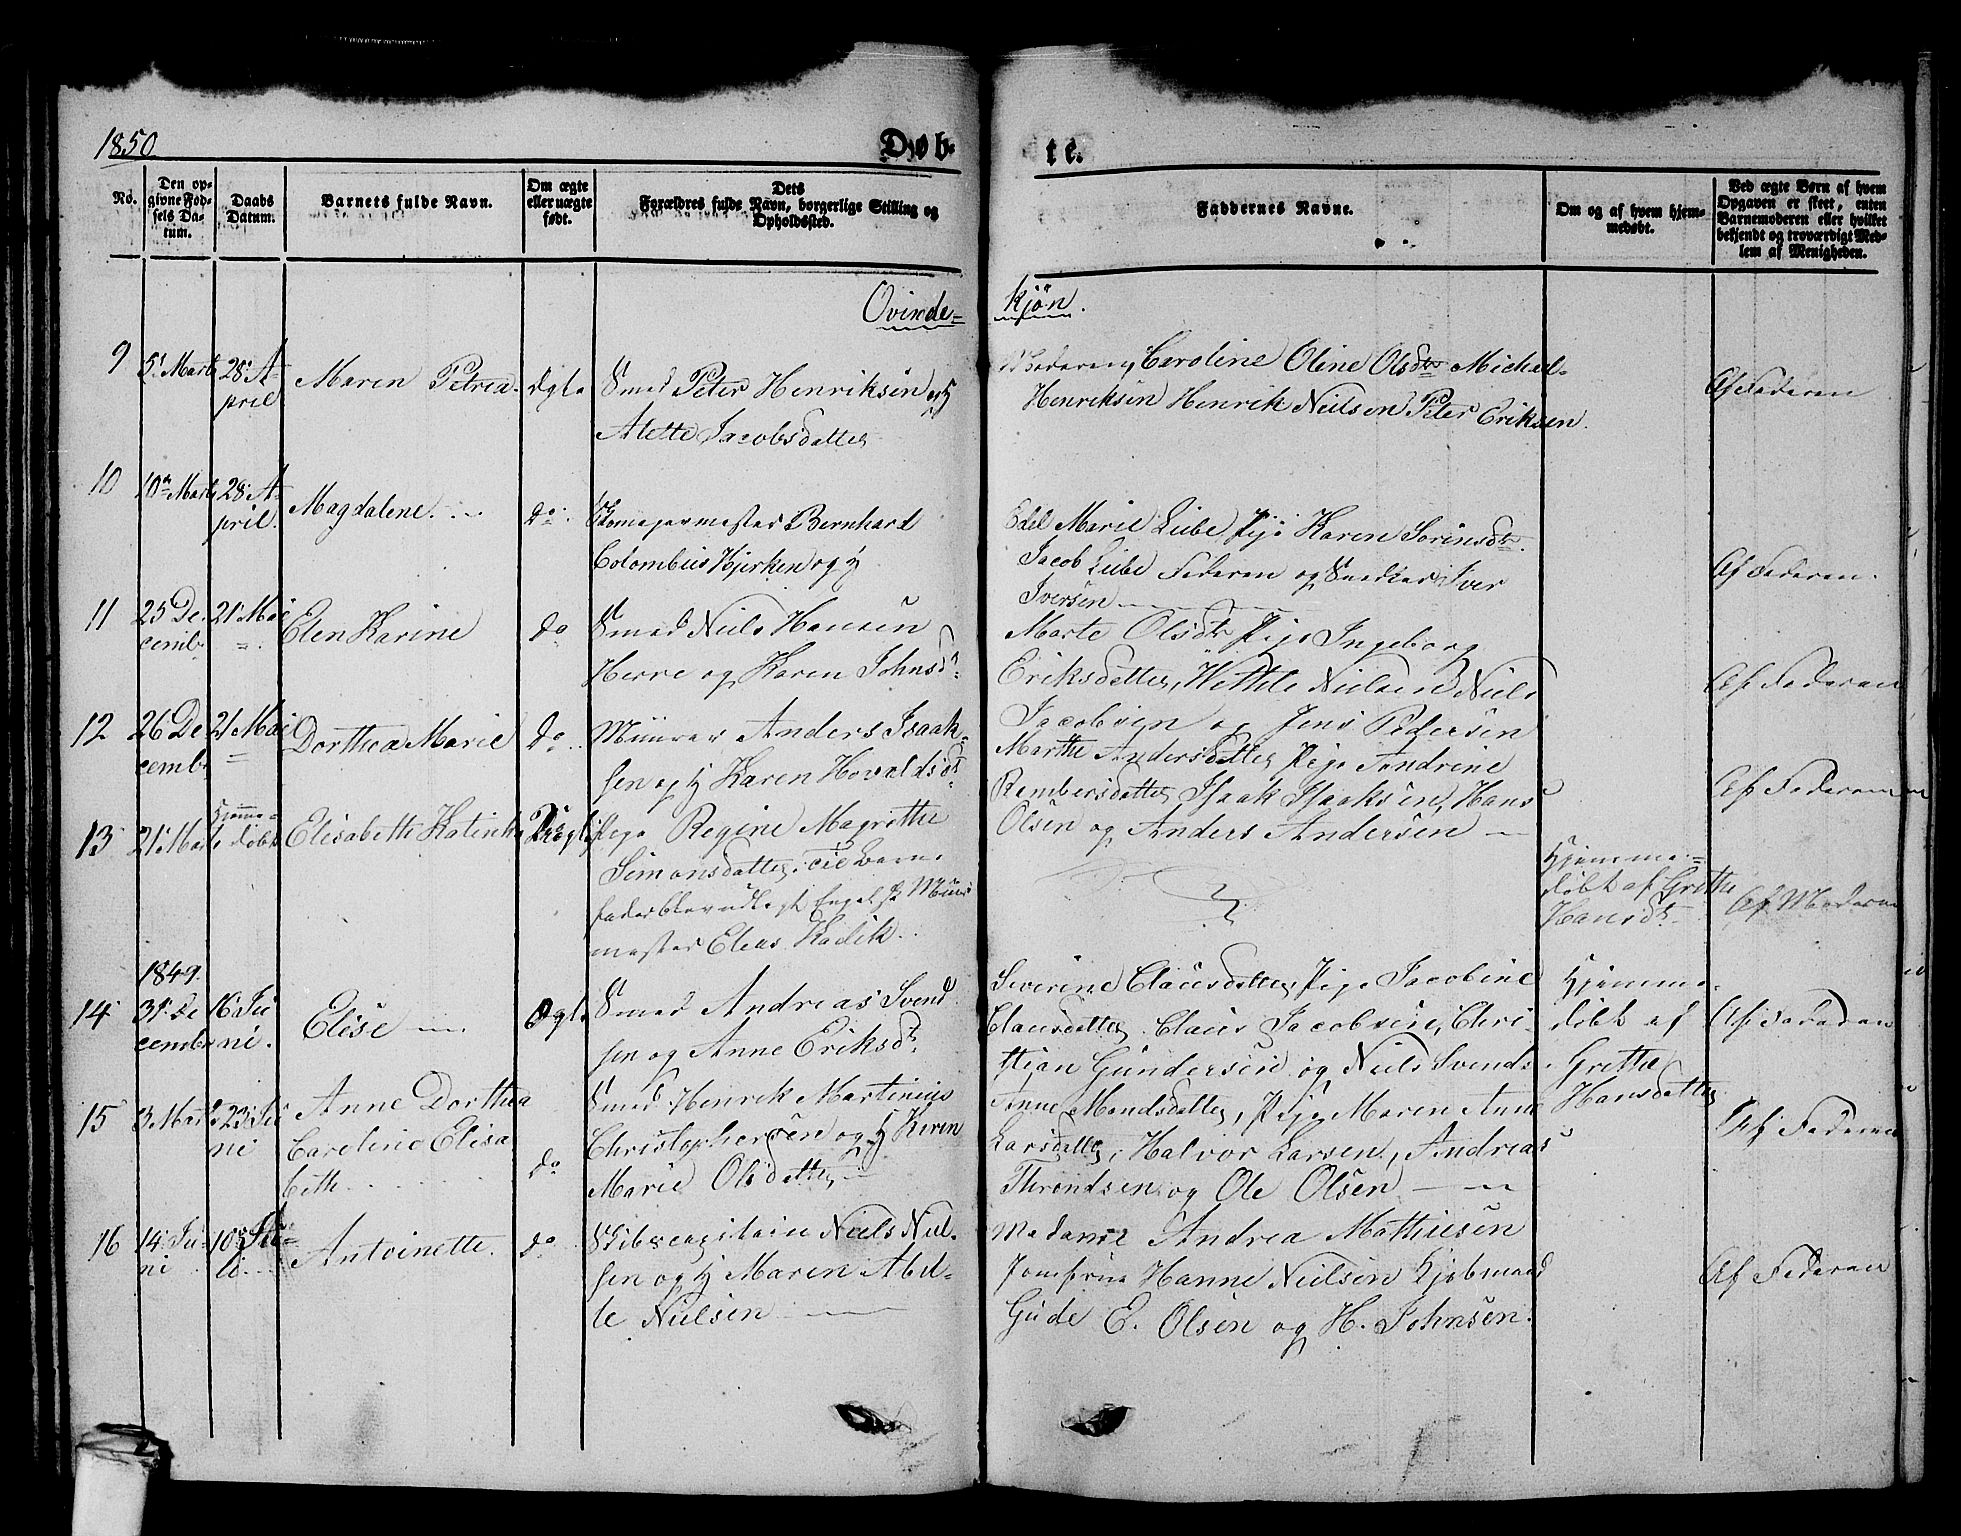 1850
Døb-
te.
No.
Den op-
givne Fød-
sels Da-
tum.
Daabs
Datum.
Barnets fulde Navn.
Om ægte
eller uægte
født.
Dets
Forældres fulde Navn, borgerlige Stilling og
Opholdssted.
Faddernes Navne.
Om og af hvem hjem-
medøbt.
Ved ægte Børn af hvem
Opgaven er skeet, enten
Barnemoderen eller hvilket
bekjendt og troværdigt Med-
lem af Menigheden.
Qvinde=
kjøn.
9
5t Marts
28 A-
pril
Maren Petrea.
Ægte
Smed Peter Henriksen og H
Alette Jacobsdatter
Moderen, Caroline Oline Olsdtr Michael
Henriksen Henrik Neilsen Peter Eriksen.
Af Faderen
10
10de Marts
28 A-
pril.
Magdalene.
do.
Bernhard
Colombus Hjerken og H
Edel Marie Lube Pige Karen Sørensdtr.
Jacob Lube Faderen og Snedker Iver
Iversen
Af Faderen.
11
25 De-
cemb.
21 Mai
Elen Karine
do
Smed Niels Hansen
Herre og Karen Johnsdt.
Marte Olsdtr Pige Ingeborg
Eriksdatter, Nielsen Niels
Jacobsen og Jens Pedersen
Af Faderen
12
26 De
cemb
21 Mai
Dorthea Marie
do
Murer Anders Isaak-
sen og H Karen Hovaldsdt.
Marthe Andersdatter Pige Tondrine
Rembersdatter Isaak Isaaksen, Hans
Olsen og Anders Andersen
Af Faderen
13
21 Marts
Hjemme-
døbt
Elisabeth Katinka
Uægte
Pige Regine Magrethe
Simonsdatter. Til Barne
fader blev udlagt Engelsk Muur
mester Elias Kadik.
Hjemme-
døbt af Grethe
Hansdt.
Af Moderen
1849.
14
31 De
cember
16 Ju
ni.
Elise
Ægte
Smed Andreas Svend
sen og Anne Eriksdt.
Severine Clausdatter, Pige Jacobine
Clausdatter. Claus Jacobsen, Chri-
stian Gundersen og Niels Svends.
Hjemme
døbt af
Grethe
Hansdatter
Af Faderen
15
3 Marts
23 Ju
ni
Anne Dorthea
Caroline Elisa
beth
do
Smed Henrik Martinius
Christophersen og H Karen
Marie Olsdatter
Anne Mondsdatter, Pige Maren Anne
Larsdatter, Halvor Larsen, Andreas
Throndsen og Ole Olsen
Af Faderen
16
14 Ju-
ni
10 Ju-
li
Antoinette.
do
Skibscapitain Niels Niel-
sen og H Maren Abel-
le Nielsen
Madame Andrea Mathiesen
Jomfrue Hanne Nielsen Kjøbmand
Gude E. Olsen og H. Johnsen.
Af Faderen